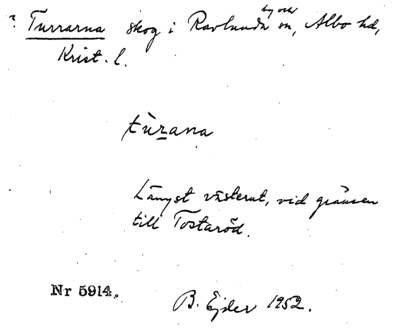 ? Turrarna skog i Ravlunda by och sn, Albo hd,
Krist. l.
tùrana
Längst västerut, vid gränsen
till Tostaröd.
Nr 5914. B. Ejder 1952.